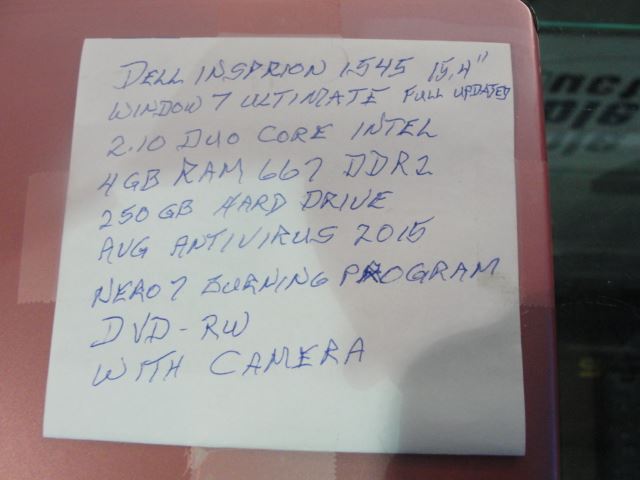 DELL INSPRION 1545 15,4"
WINDOW 7 ULTIMATE FULL UPDATED
2.10 DUO CORE INTEL
4GB RAM 667 DDR2
250 GB HARD DRIVE
AVG ANTIVIRUS 2015
NERO 7 BURNING PROGRAM
DVD-RW
WITH CAMERA